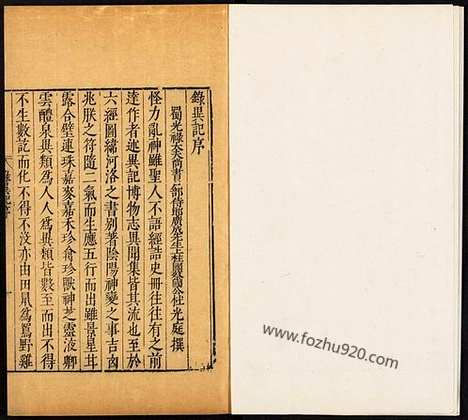 錄異記序
蜀光祿大夫尚書戶部侍郎廣成先生上柱國蔡國公杜光庭撰
怪力亂神雖聖人不語經誥史冊往往有之前
達作者述異記博物志異聞集皆其流也至於
六經圖緯河洛之書別著陰陽神變之事吉凶
兆朕之符隨二氣而生應五行而出雖景星甘
露合璧連珠嘉麥嘉禾珍禽珍獸神芝靈液卿
雲醴泉異類為人人為異類皆數至而出不得
不生數訖而化不得不沒亦由田鼠為鴽野雞
www.fozhu920.com